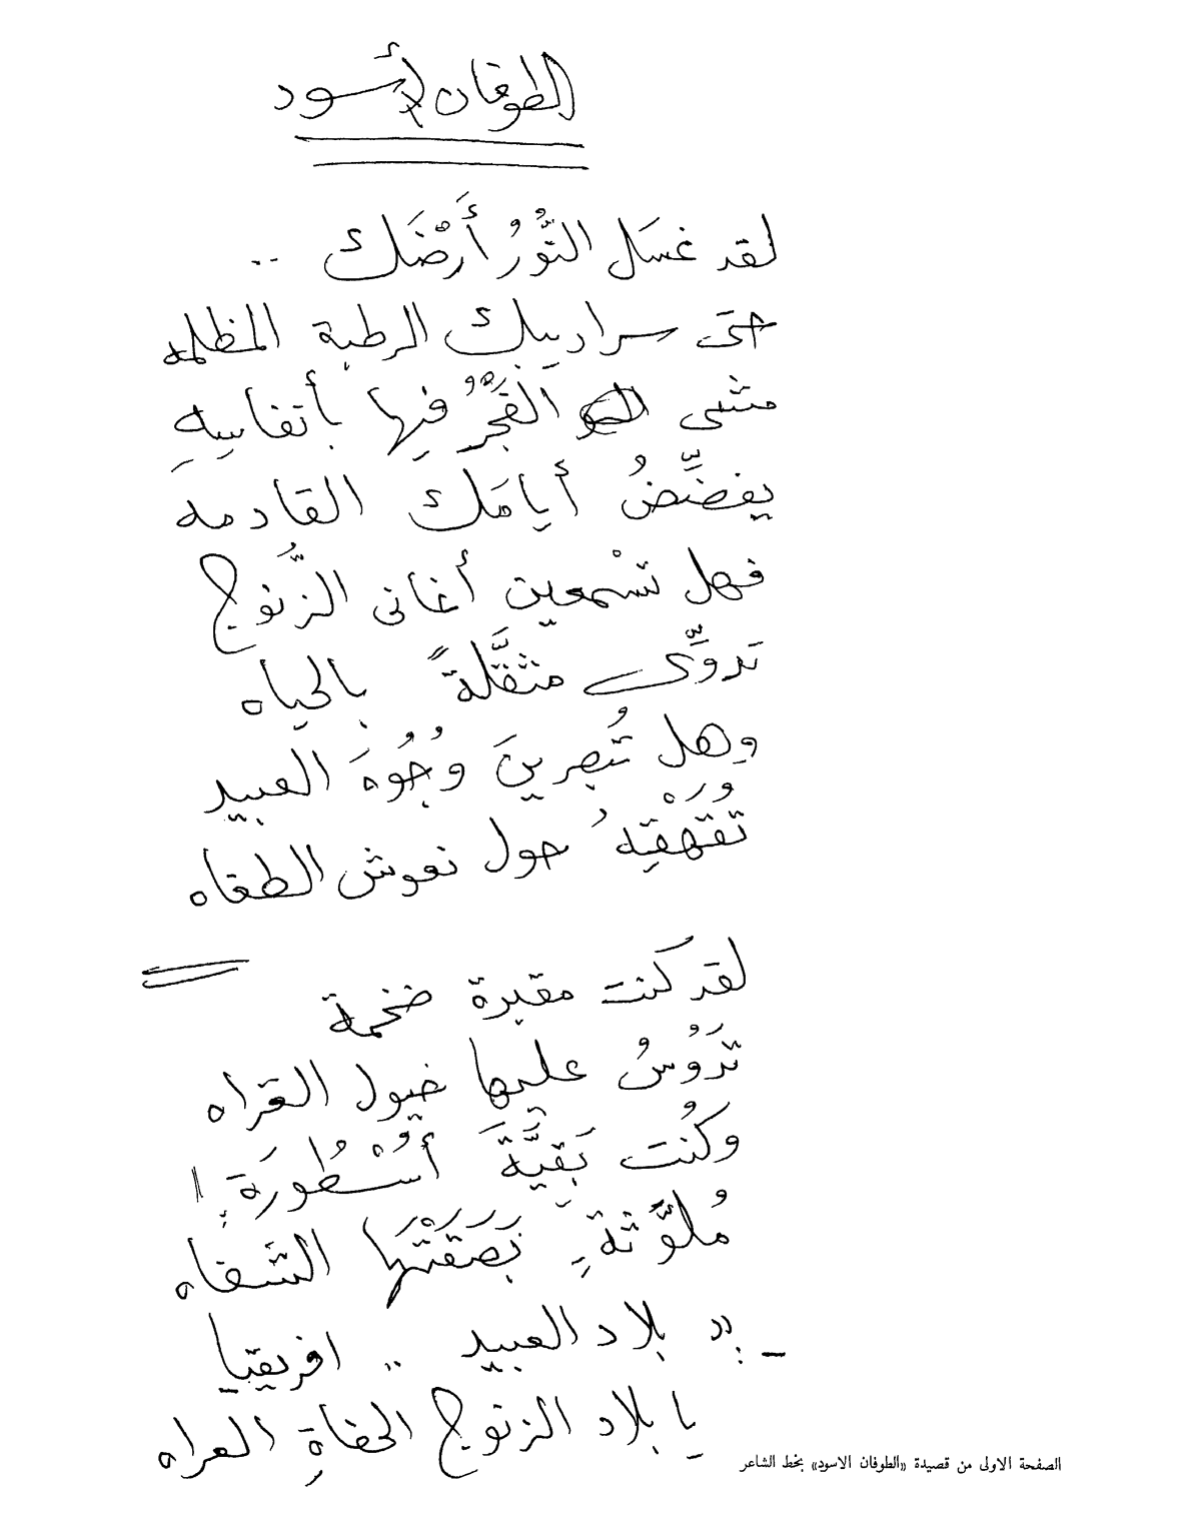 الطوفان الأسود
لقد غسَل النُّورُ أَرْضَك ..
حتى سراديبك الرطبة المظلمه
مشى الفَجْرُ فيها بأتفاسِهِ
يفضِّضُ أيامَك القادمه
فهل تسْمعين أغانى الزُّنوج
تدوِّى مثقَّلةً بالحياه
وهل تُبصرينَ وُجُوهَ العبيد
تُقَهْقِهُ حول نعوش الطغاه
لقد كنت مقبرة ضخمة
تَدُوسُ عليها خيول الغزاه
وكُنت بَقِيَّةَ أُسْطُورَةٍ !
مُلوَّثةٍ بَصَقَتْهَا الشفاه
- : « بلاد العبيد .. افريقيا
يا بلاد الزنوج الحفاةِ العراه
الصفحة الاولى من قصيدة «الطوفان الاسود» بخط الشاعر